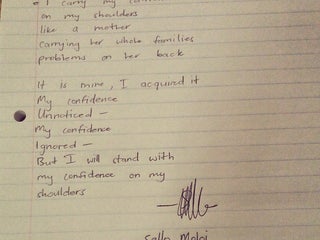 I carry my
on my shoulders
like a mother
carrying her whole families
problems on her back
It is mine, I acquired it
My confidence
Unnoticed —
My confidence
Ignored —
But I will stand with
my confidence on my
shoulders
Sello